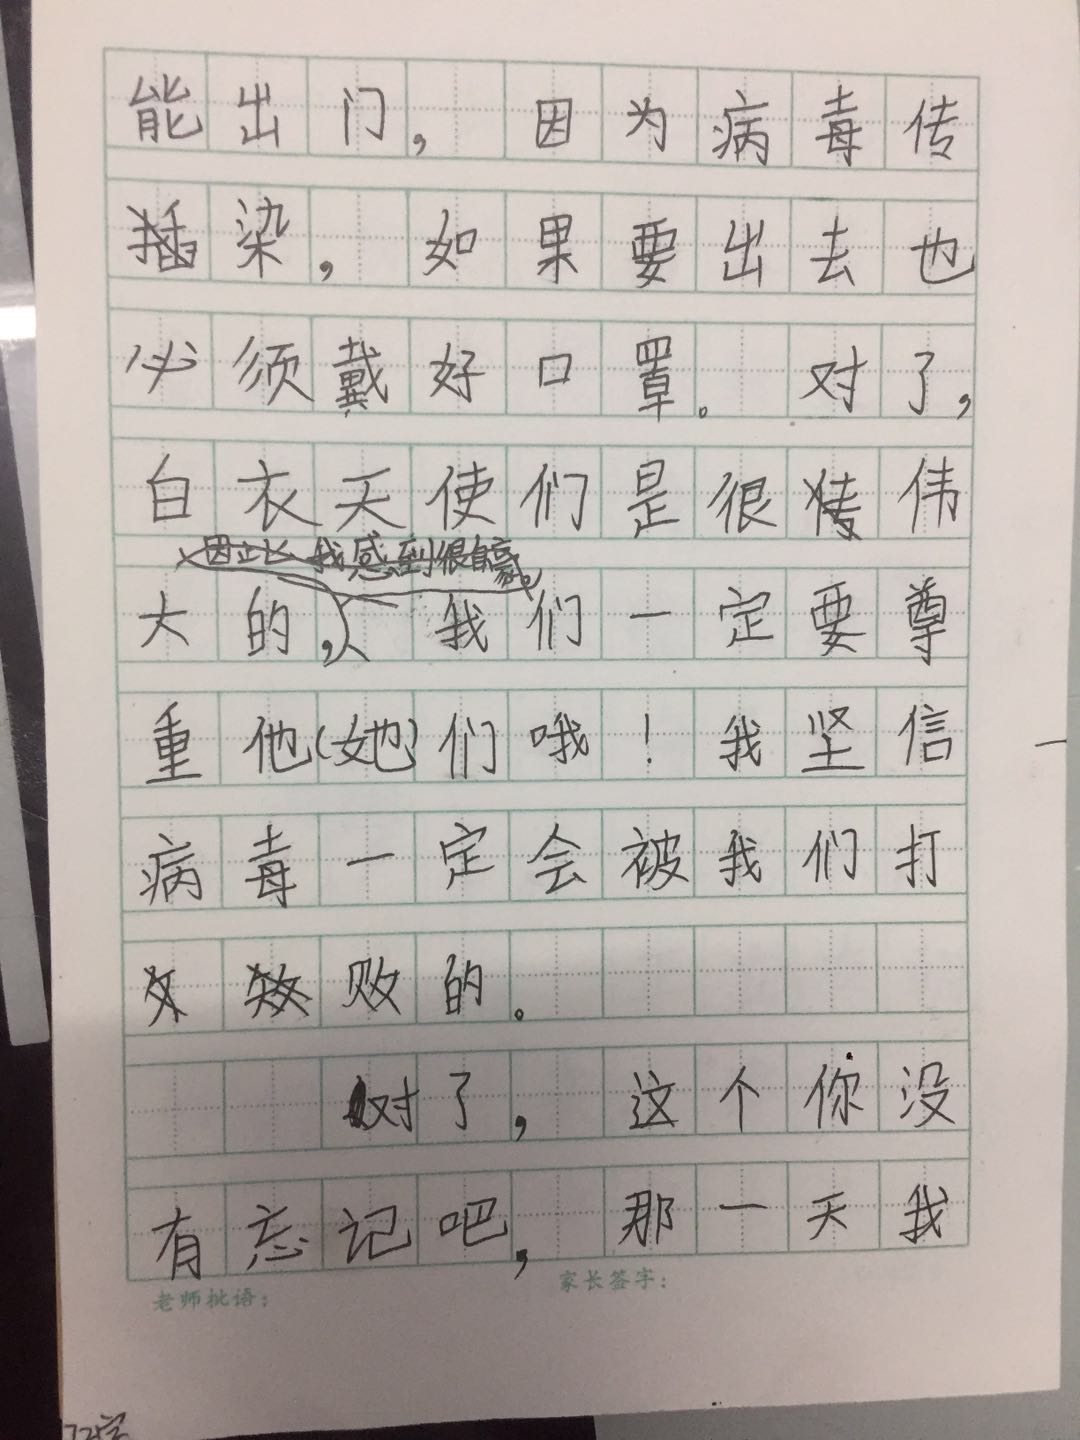 能出门，因为病毒传
染，如果要出去也
必须戴好口罩。对了，
白衣天使们是很伟
因此我感到很自豪。
大的，我们一定要尊
重他(她)们哦！我坚信
病毒一定会被我们打
败的。
对了，这个你没
有忘记吧，那一天我
老师批语：
家长签字：